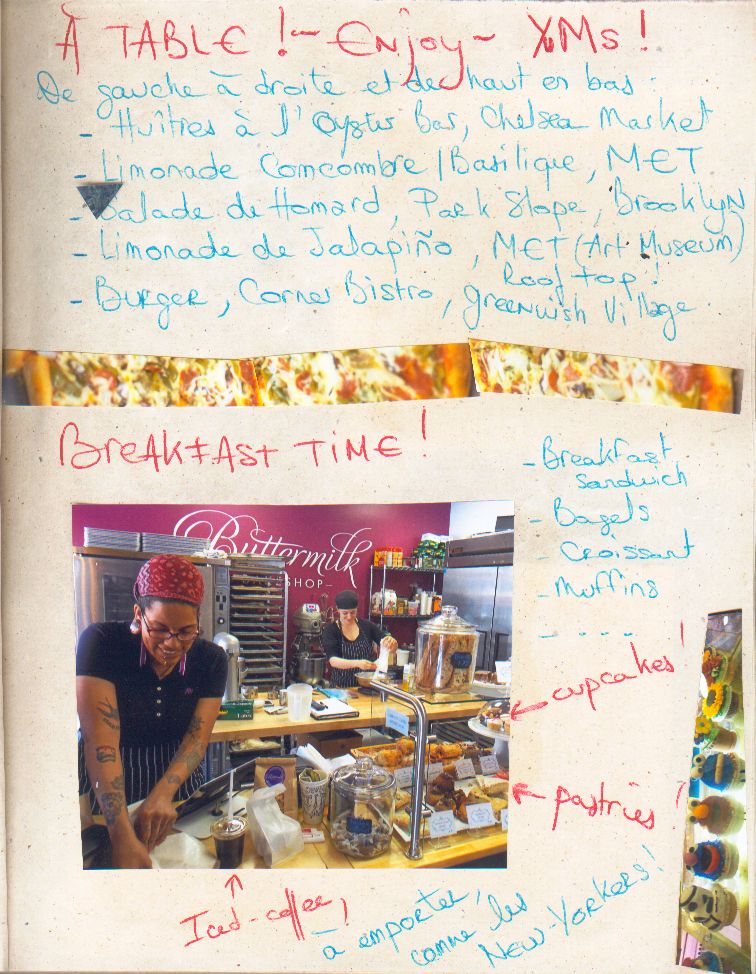 À TABLE ! - Enjoy - YMs !
De gauche à droite et de haut en bas :
- Huîtres à l'Oyster Bar, Chelsea Market
- Limonade Comcombre / Basilique, MET
- Salade de Homard, Park Slope, Brooklyn
- Limonade de Jalapiño, MET (Art Museum)
Roof top !
- Burger, Corner Bistro, Greenwish Village.
BreakFAST TIME !
- Breakfast
sandwich
- Bagels
- Croissant
- Muffins
- - - - -
Buttermilk
SHOP
cupcakes !
pastries !
Iced-coffee,
à emporter,
comme les
NEW-YORKERS !